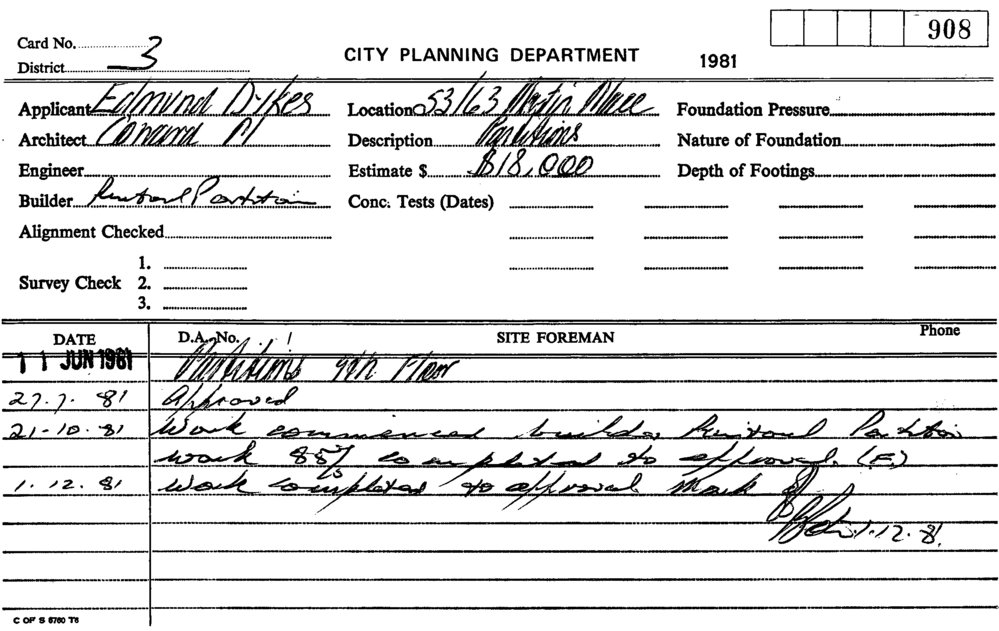 908
Card No. 3
District
CITY PLANNING DEPARTMENT 1981
Applicant Edmund Dykes Location 53/63 Martin Place Foundation Pressure
Architect Description Partitions Nature of Foundation
Engineer Estimate $ $18,000 Depth of Footings
Builder Partition Conc. Tests (Dates)
Alignment Checked
1.
Survey Check 2.
3.
DATE D.A. No. SITE FOREMAN Phone
11 JUN 1981 Partitions 9th Floor
27.7.81 Approved
21-10.81 Work commenced builder Partition
work 85% completed to approval. (F.)
1.12.81 Work completed to approval Mark
1.12.81.
C OF S 5760 T6